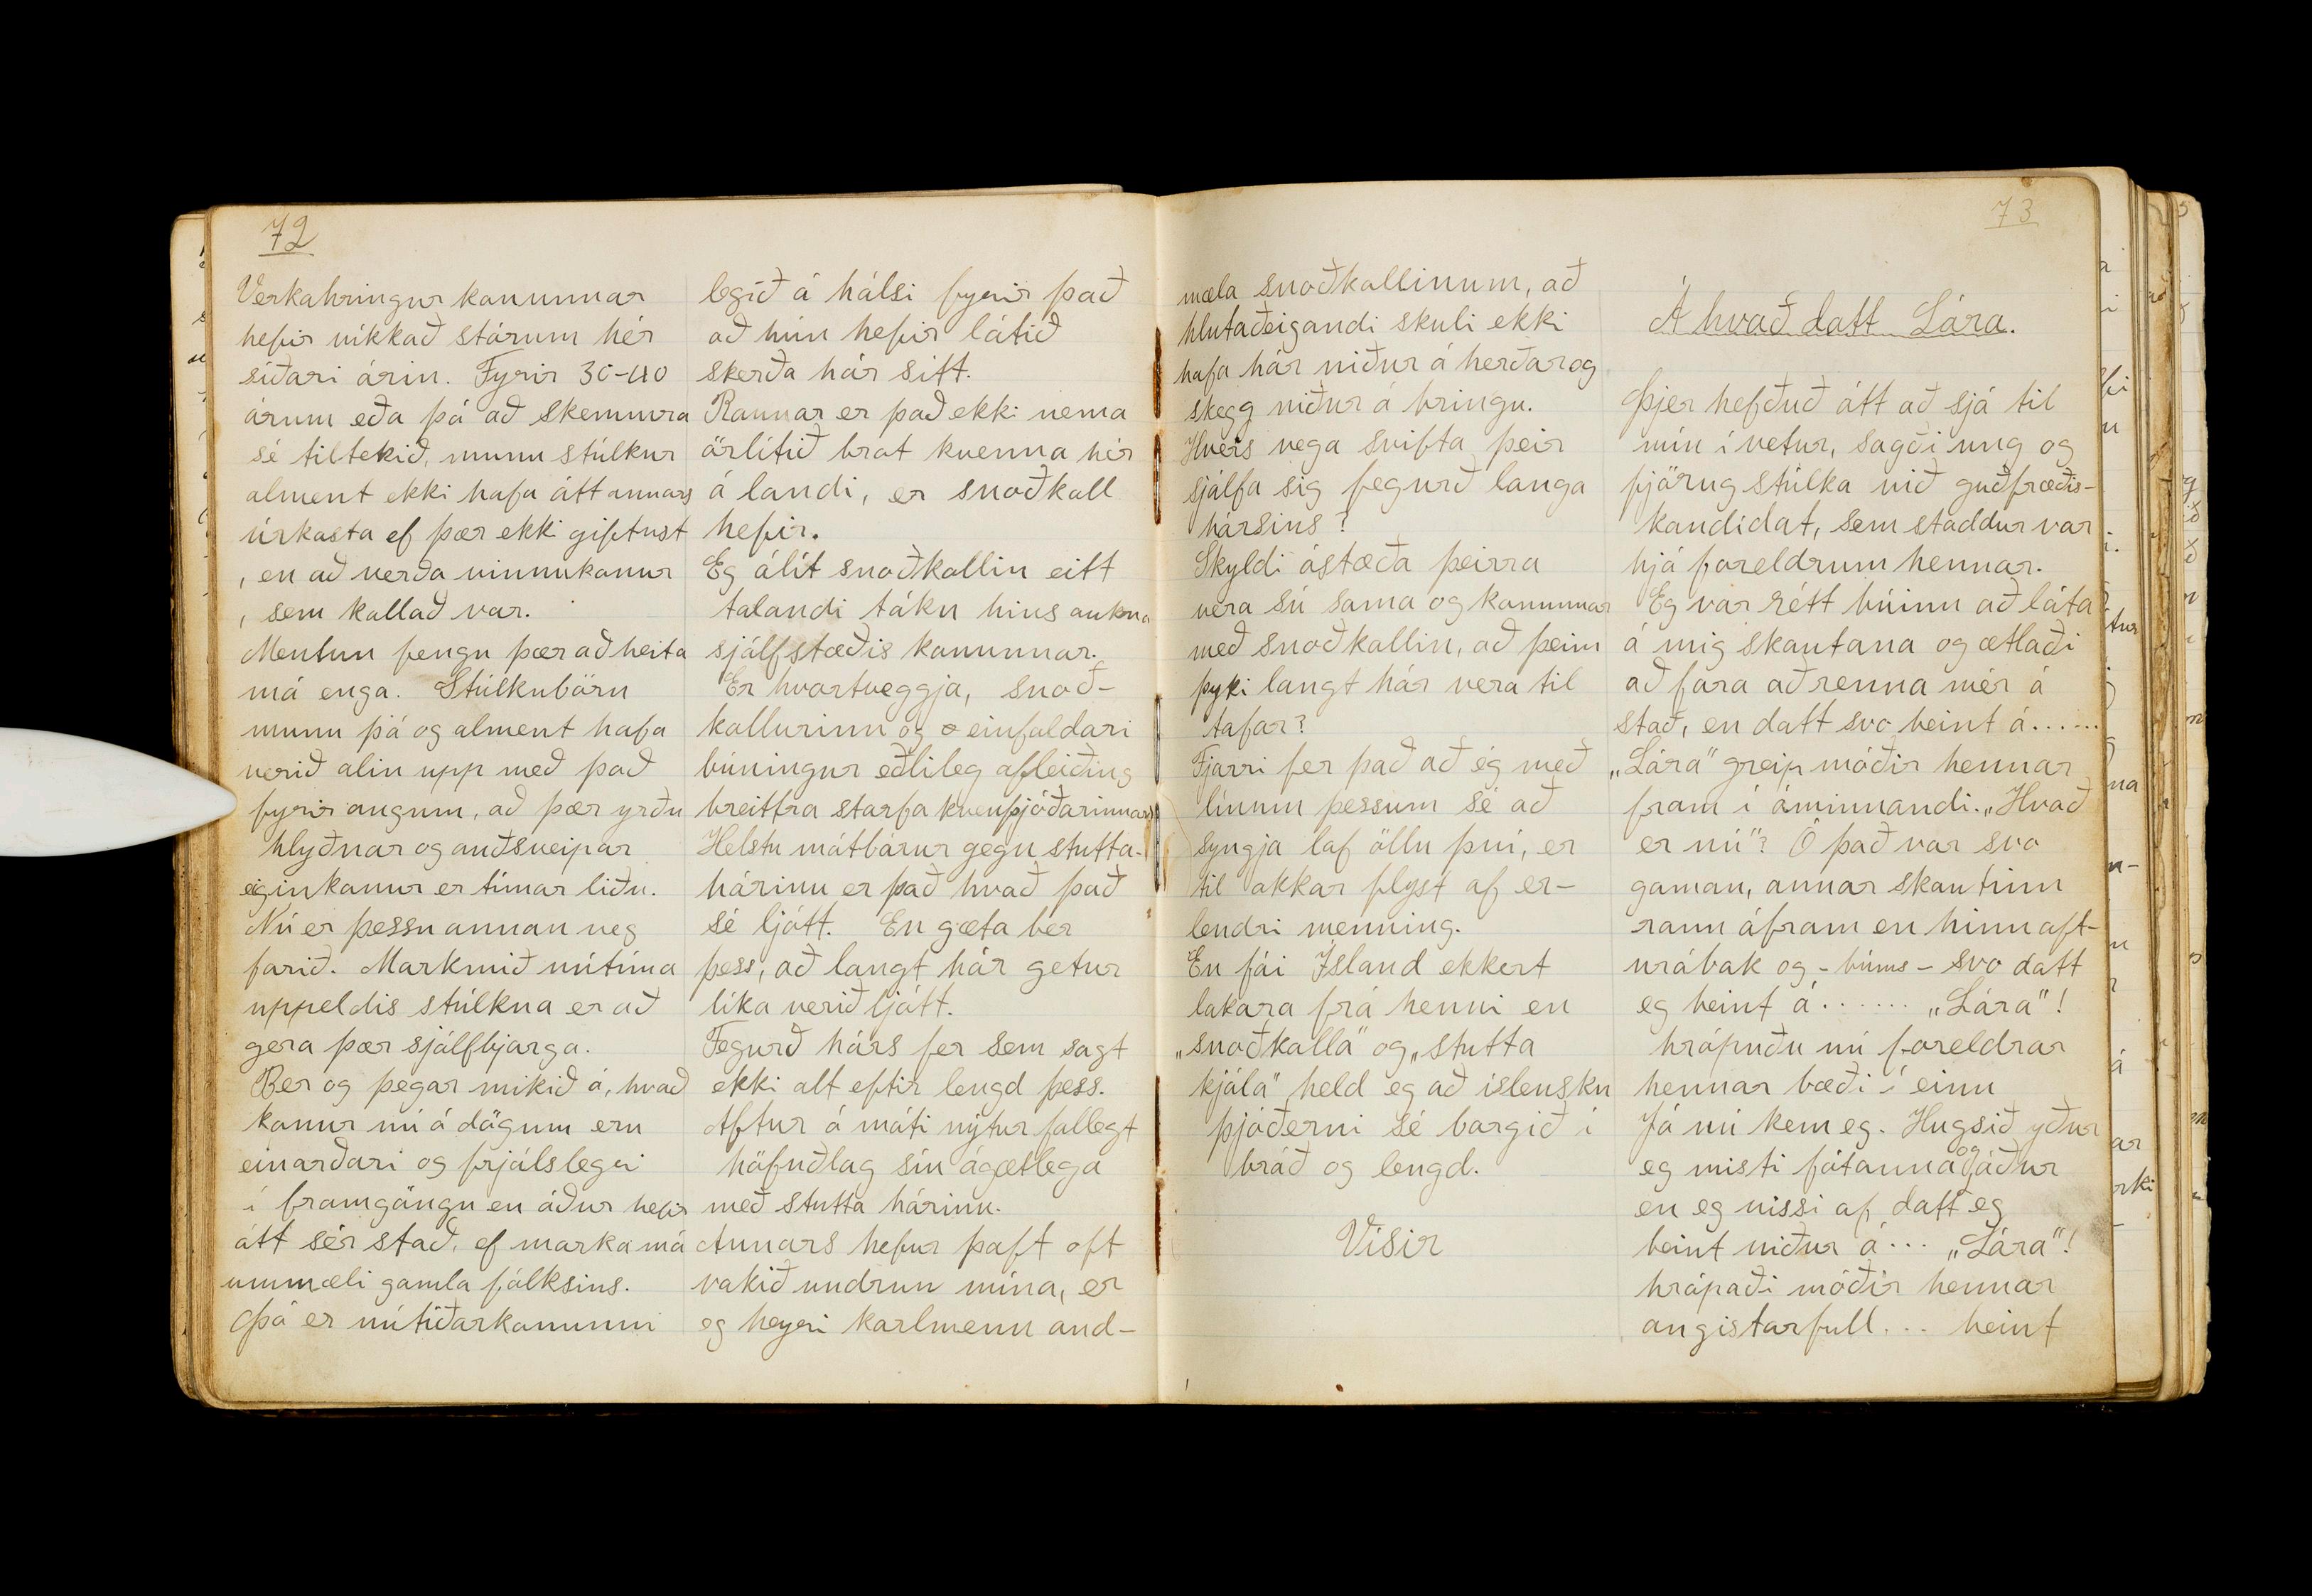 72
Verkahringur konunnar
hefir víkkað stórum hér
síðari árin. Fyrir 30-40
árum eða þó að skemmra
sé tiltekið, munu stúlkur
alment ekki hafa átt annars
úrkosta ef þær ekki giftust
, en að verða vinnukonur
, sem kallað var.
Mentun fengu þær að heita
má enga. Stúlkubörn
munu þá og alment hafa
verið alin upp með það
fyrir augum, að þær yrðu
hlyðnar og auðsveipar
eiginkonur er tímar liðu.
Nú er þessu annan veg
farið. Markmið nútíma
uppeldis stúlkna er að
gera þær sjálfbjarga.
Ber og þegar mikið á, hvað
konur nú á dögum eru
einarðari og frjálslegri
í framgöngu en áður hefir
átt sér stað, ef marka má
ummæli gamla fólksins.
Þó er nútíðarkonunni
legið á hálsi fyrir það
að hún hefir látið
skerða hár sitt.
Raunar er það ekki nema
örlítið brot kvenna hér
á landi, er snoðkoll
hefir.
Eg álít snoðkollin eitt
talandi tákn hins aukna
sjálfstæðis konunnar.
Er hvortveggja, snoð-
kollurinn og einfaldari
búningur eðlileg afleiðing
breittra starfa kvenþjóðarinnar
Helstu mótbárur gegn stutta-
hárinu er það hvað það
sé ljótt. En gæta ber
þess, að langt hár getur
líka verið ljótt.
Fegurð hárs fer sem sagt
ekki alt eftir lengd þess.
Aftur á móti nýtur fallegt
höfuðlag sín ágætlega
með stutta hárinu.
Annars hefur þaft oft
vakið undrun mína, er
eg heyri karlmenn and-
73
mæla snoðkollinum, að
hlutaðeigandi skuli ekki
hafa hár niður á herðar og
skegg niður á bringu.
Hvers vega svifta þeir
sjálfa sig fegurð langa
hársins?
Skyldi ástæða þeirra
vera sú sama og konunnar
með snoðkollin, að þeim
þyki langt hár vera til
tafar?
Fjarri fer það að ég með
línum þessum sé að
syngja lof öllu því, er
til okkar flyst af er-
lendri menning.
En fái Ísland ekkert
lakara frá henni en
„snoðkolla" og „stutta
kjóla" held eg að íslensku
þjóðerni sé borgið í
bráð og lengd.
Vísir
Á hvað datt Lára.
Þjer hefðuð átt að sjá til
mín í vetur, sagði ung og
fjörug stúlka við guðfræðis-
kandidat, sem staddur var
hjá foreldrum hennar.
Eg var rétt búinn að láta
á mig skautana og ætlaði
að fara að renna mér á
stað, en datt svo beint á......
„Lára" greip móðir hennar
fram í áminnandi. „Hvað
er nú"? Ó það var svo
gaman, annar skautinn
rann áfram en hinn aft-
urábak og - búms - svo datt
eg beint á...... „Lára"!
hrópuðu nú foreldrar
hennar bæði í einu
Já nú kem eg. Hugsið yður
eg misti fótanna og áður
en eg vissi af datt eg
beint niður á... „Lára"!
hrópaði móðir hennar
angistarfull... beint